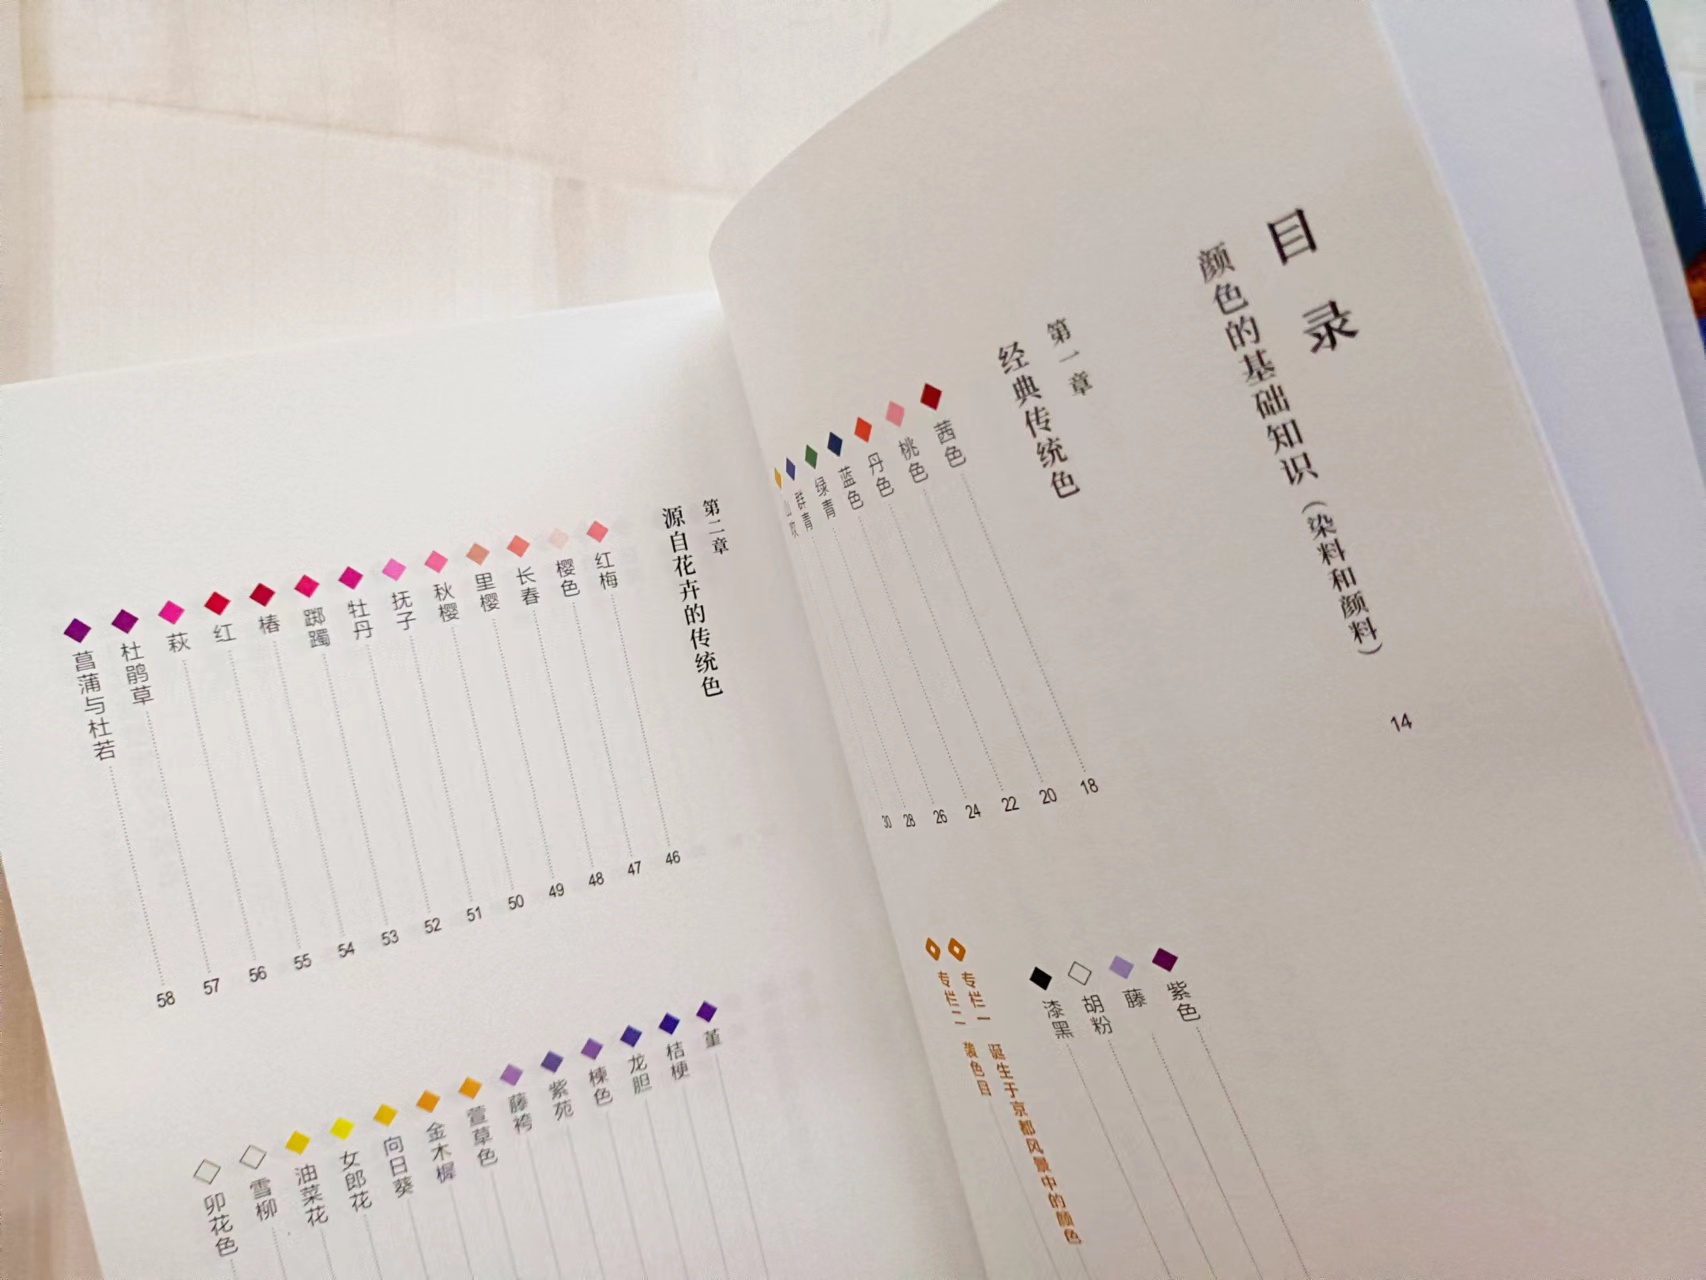 目录
颜色的基础知识（染料和颜料）
14
第一章
经典传统色
茜色 18
桃色 20
丹色 22
蓝色 24
绿青 26
群青 28
山吹 30
紫色
藤
胡粉
漆黑
专栏一 诞生于京都风景中的颜色
专栏二 袭色目
第二章
源自花卉的传统色
红梅 46
樱色 47
长春 48
里樱 49
秋樱 50
抚子 51
牡丹 52
踯躅 53
椿 54
红 55
萩 56
杜鹃草 57
菖蒲与杜若 58
堇
桔梗
龙胆
楝色
紫苑
藤袴
萱草色
金木樨
向日葵
女郎花
油菜花
雪柳
卯花色